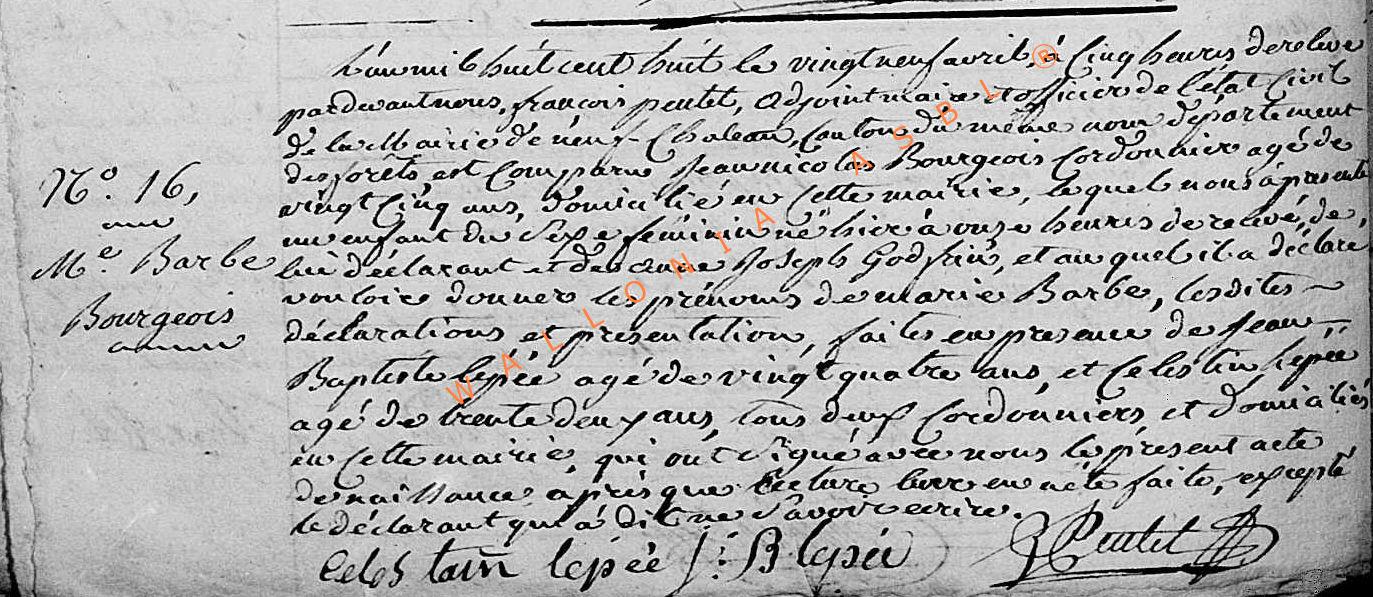 N.º 16,
M.e Barbe
Bourgeois
L'an mil huit cent huit le vingt neuf avril, à Cinq heures de relevée
pardevant nous, françois pentet, adjoint maire et officier de l'état Civil
de la Mairie de neuf-Chateau, Canton du même nom département
des forêts est Comparu Jean nicolas Bourgeois Cordonnier agé de
vingt Cinq ans, domicilié en Cette mairie, lequel nous à présenté
un enfant du Sexe féminin né hier à onze heures de relevé, de
lui déclarant et de Joseph Godfrin, et auquel il a déclaré
vouloir donner les prénoms de marie Barbe, lesdites
déclarations et présentation, faites en presence de Jean
Baptiste lepée agé de vingt quatre ans, et Celestin Lepée
agé de trente deux ans, tous deux Cordonniers et domiciliés
en Cette mairie, qui ont Signé avec nous le présent acte
de naissance après que lecture leur en a été faite, excepté
le déclarant qui à dit ne Savoir écrire.
Celestain lepée J: B lepée Pentet
WALLONIA ASBL ®